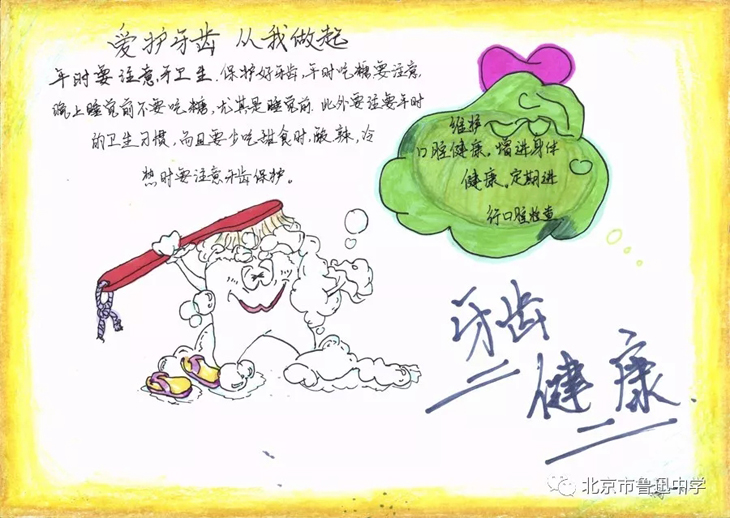 爱护牙齿 从我做起
平时要注意牙卫生.保护好牙齿,平时吃糖要注意,
晚上睡觉前不要吃糖,尤其是睡觉前.此外要注意平时
的卫生习惯,而且要少吃甜食时,酸、辣、冷
热时要注意牙齿保护。
维护
口腔健康,增进身体
健康。定期进
行口腔检查
牙齿
健康.
北京市鲁迅中学